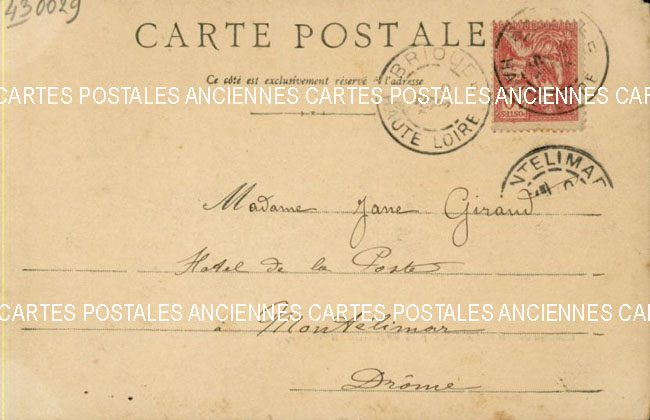 430029
CARTE POSTALE
Ce côté est exclusivement réservé à l'adresse
BRIOUDE
HAUTE LOIRE
CARTES POSTALES ANCIENNES CARTES POSTALES ANCIENNES CAR
POSTES
NTELIMAR
Madame Jane Giraud
Hotel de la Poste
CARTES POSTALES ANCIENNES CARTES POSTALES ANCIENNES CAR
à Montelimar
Drôme